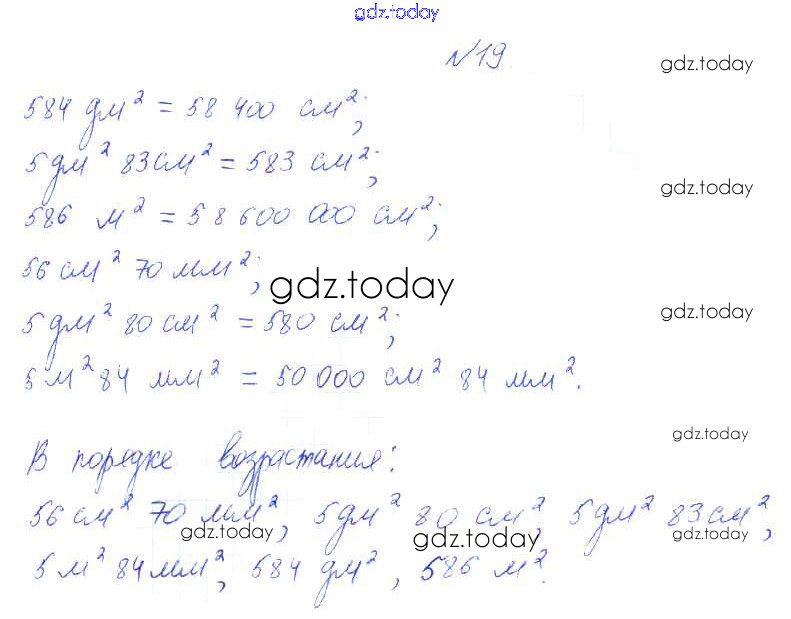 gdz.today
№19.
gdz.today
584 дм² = 58 400 см²;
5 дм² 83 см² = 583 см²;
gdz.today
586 м² = 58 600 000 см²;
56 см² 70 мм²;
gdz.today
gdz.today
5 дм² 80 см² = 580 см²;
5 м² 84 мм² = 50 000 см² 84 мм².
gdz.today
В порядке возрастания:
56 см² 70 мм², 5 дм² 80 см², 5 дм² 83 см²,
gdz.today gdz.today gdz.today
5 м² 84 мм², 584 дм², 586 м².